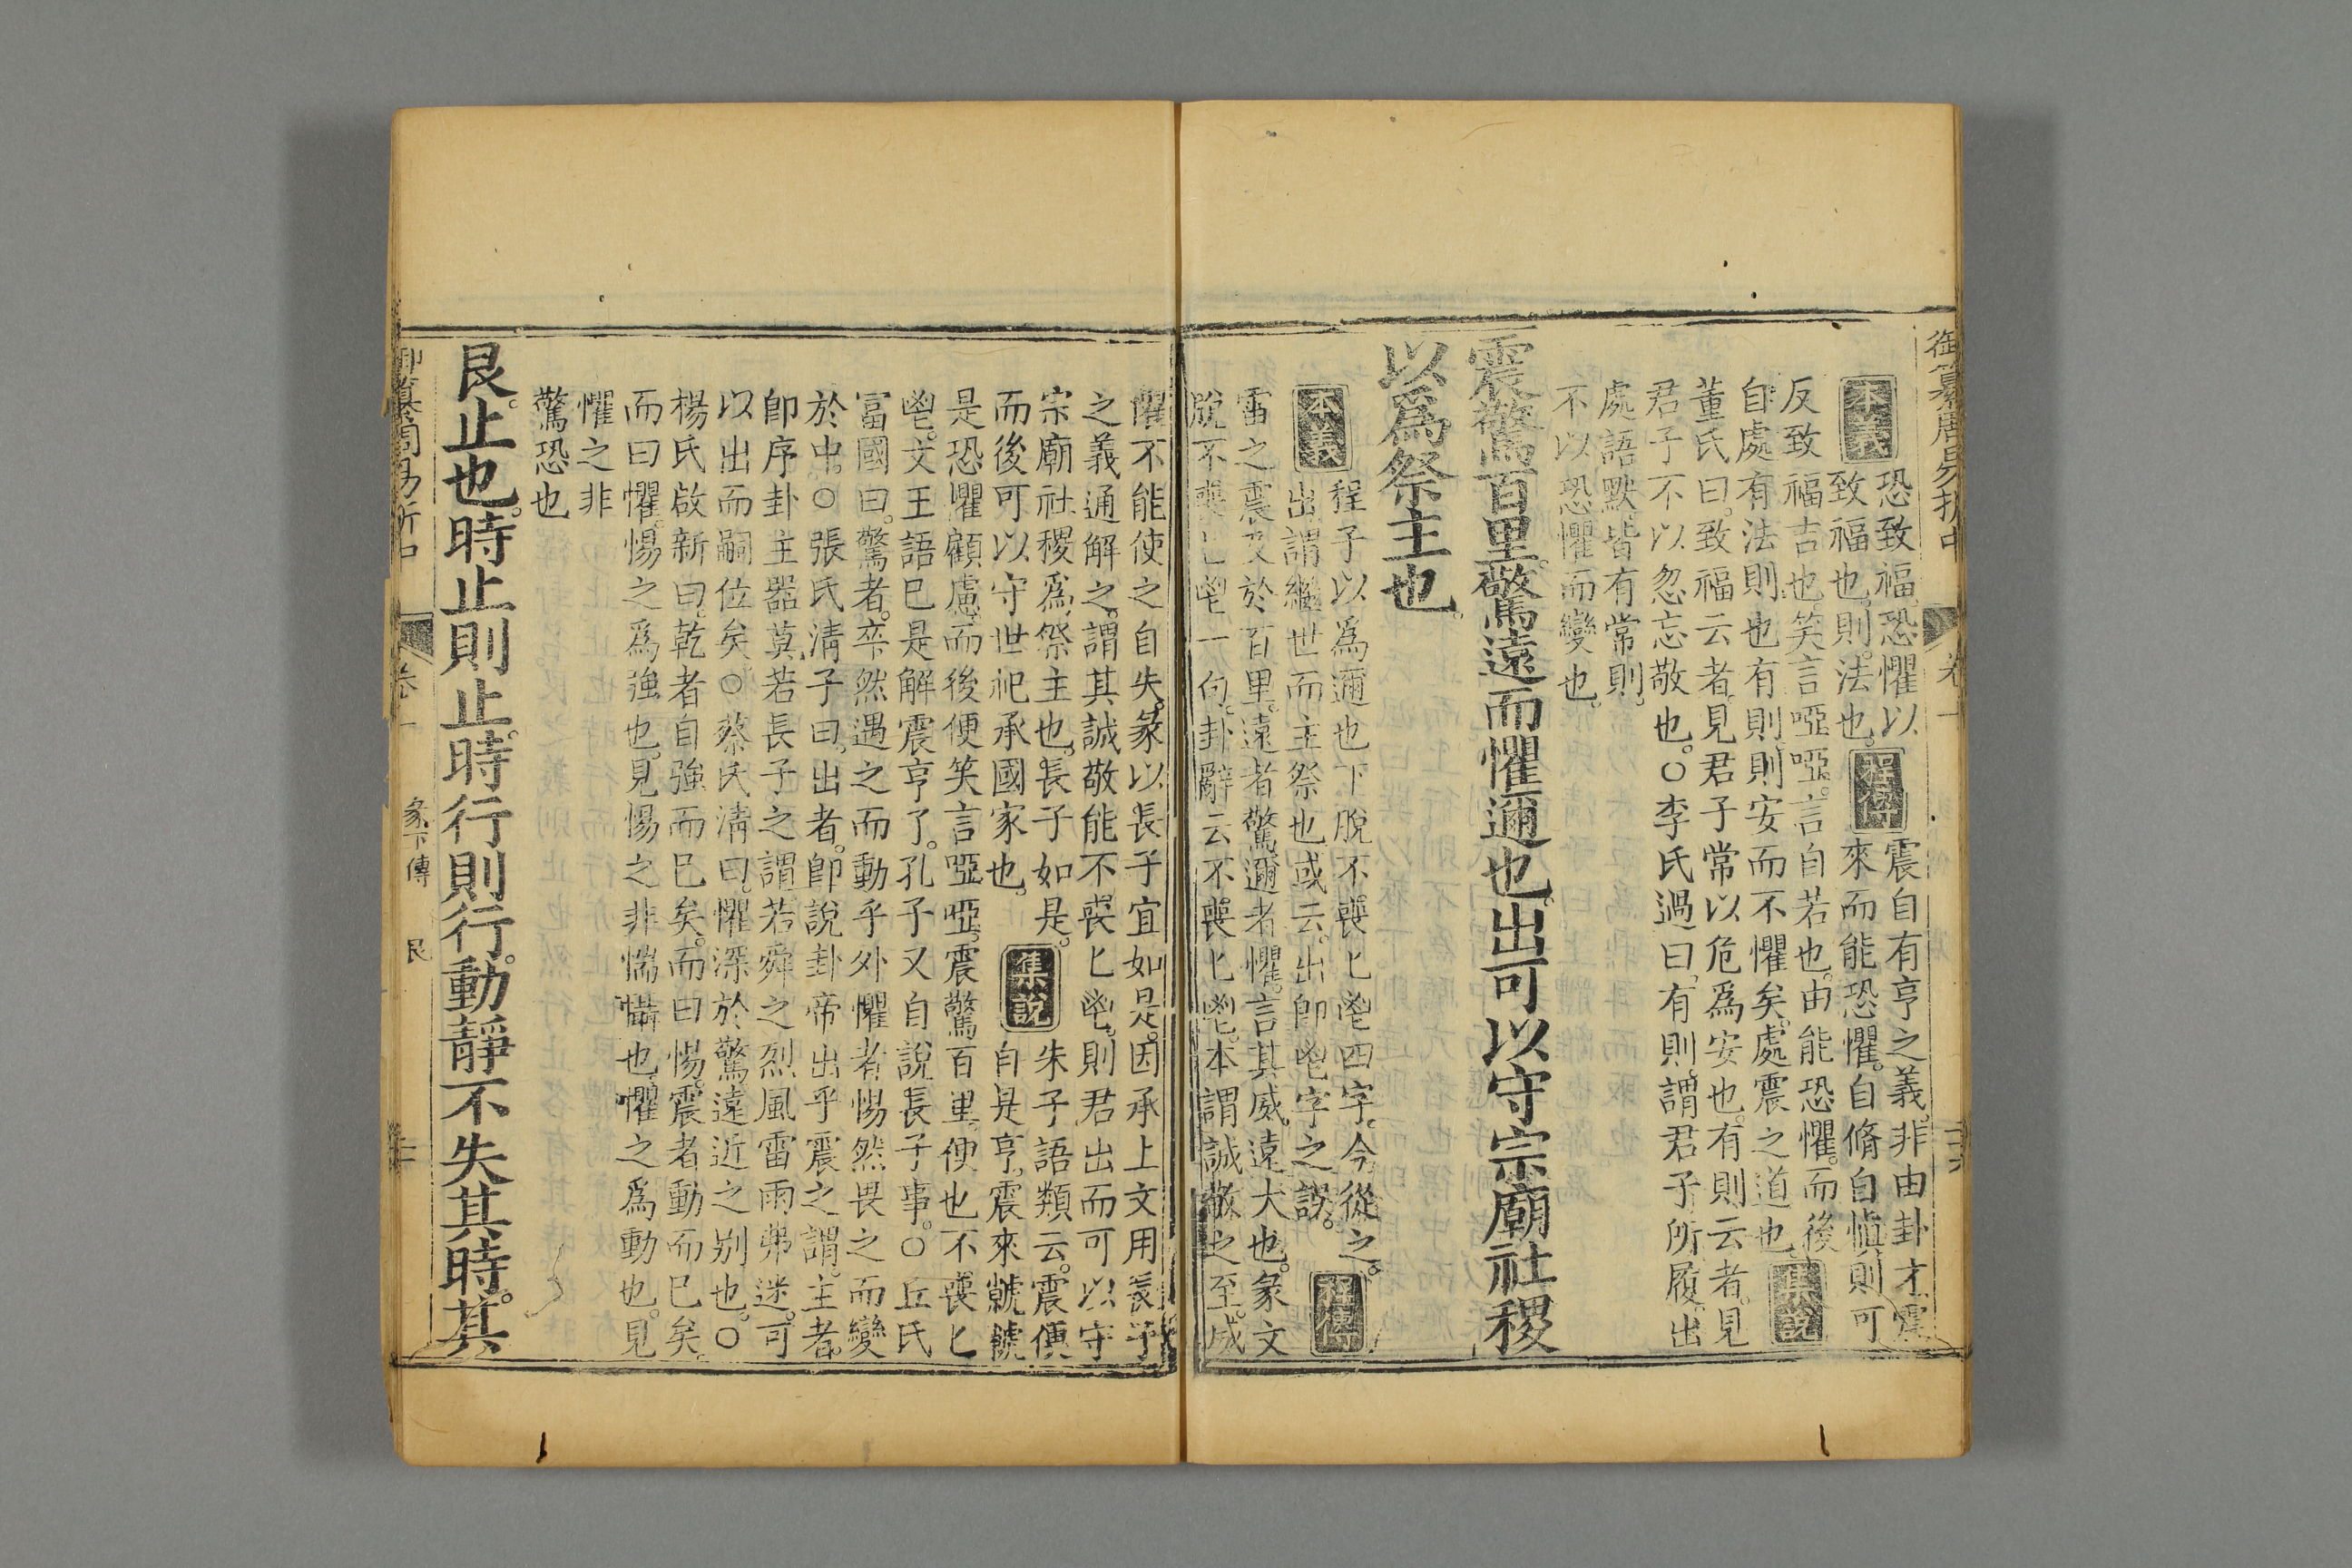 御纂周易折中
卷十
本義
恐致福恐懼以
致福也。則。法也。
程傳
震自有亨之義。非由卦才。震
來而能恐懼。自脩自愼。則可
反致福吉也。笑言啞啞。言自若也。由能恐懼。而後
自處有法則也有則。則安而不懼矣。處震之道也。
集說
董氏曰。致福云者。見君子常以危爲安也。有則云者。見
君子不以忽忘敬也。○李氏過曰。有則。謂君子所履。出
處語默。皆有常則。
不以恐懼而變也。
震驚百里。驚遠而懼邇也。出可以守宗廟社稷
以爲祭主也。
本義
程子以爲邇也下脫不喪匕鬯四字。今從之。
出謂繼世而主祭也或云。出卽鬯字之誤。
程傳
雷之震及於百里。遠者驚邇者懼。言其威遠大也。彖文
脫不喪匕鬯一句。卦辭云不喪匕鬯。本謂誠敬之至。威
懼不能使之自失。彖以長子宜如是。因承上文用長子
之義通解之。謂其誠敬能不喪匕鬯。則君出而可以守
宗廟社稷爲祭主也。長子如是。
而後可以守世祀承國家也。
集說
朱子語類云。震便
自是亨。震來虩虩
是恐懼顧慮。而後便笑言啞啞。震驚百里。便也不喪匕
鬯。文王語已是解震亨了。孔子又自說長子事。○丘氏
富國曰。驚者。卒然遇之而動乎外懼者惕然畏之而變
於中。○張氏淸子曰。出者。卽說卦帝出乎震之謂。主者。
卽序卦主器莫若長子之謂若舜之烈風雷雨弗迷。可
以出而嗣位矣。○蔡氏淸曰。懼深於驚遠近之别也。○
楊氏啟新曰。乾者自強而已矣。而曰惕。震者動而已矣。
而曰懼。惕之爲強也。見惕之非惴懾也。懼之爲動也。見
懼之非
驚恐也
艮。止也。時止則止。時行則行。動靜不失其時。其
御纂周易折中
卷十
彖下傳
艮